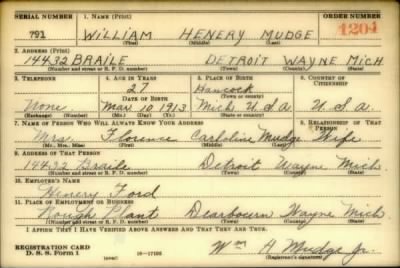 SERIAL NUMBER 1. NAME (Print) ORDER NUMBER
791 WILLIAM HENERY MUDGE 1204
(First) (Middle) (Last)
2. ADDRESS (Print)
14432 BRAILE DETROIT WAYNE MICH
(Number and street or R. F. D. number) (Town) (County) (State)
3. TELEPHONE 4. AGE IN YEARS 5. PLACE OF BIRTH 6. COUNTRY OF CITIZENSHIP
27 Hancock
DATE OF BIRTH (Town or county)
None Mar. 10, 1913 Mich U.S.A. U.S.A.
(Exchange) (Number) (Mo.) (Day) (Yr.) (State or country)
7. NAME OF PERSON WHO WILL ALWAYS KNOW YOUR ADDRESS 8. RELATIONSHIP OF THAT PERSON
Mrs. Florence Carholine Mudge Wife
(Mr., Mrs., Miss) (First) (Middle) (Last)
9. ADDRESS OF THAT PERSON
14432 Braile Detroit Wayne Mich.
(Number and street or R. F. D. number) (Town) (County) (State)
10. EMPLOYER'S NAME
Henery Ford
11. PLACE OF EMPLOYMENT OR BUSINESS
Rough Plant Dearbourn Wayne Mich.
(Number and street or R. F. D. number) (Town) (County) (State)
I AFFIRM THAT I HAVE VERIFIED ABOVE ANSWERS AND THAT THEY ARE TRUE.
REGISTRATION CARD
D. S. S. Form 1 (over) 16-17105 Wm H Mudge Jr.
(Registrant's signature)